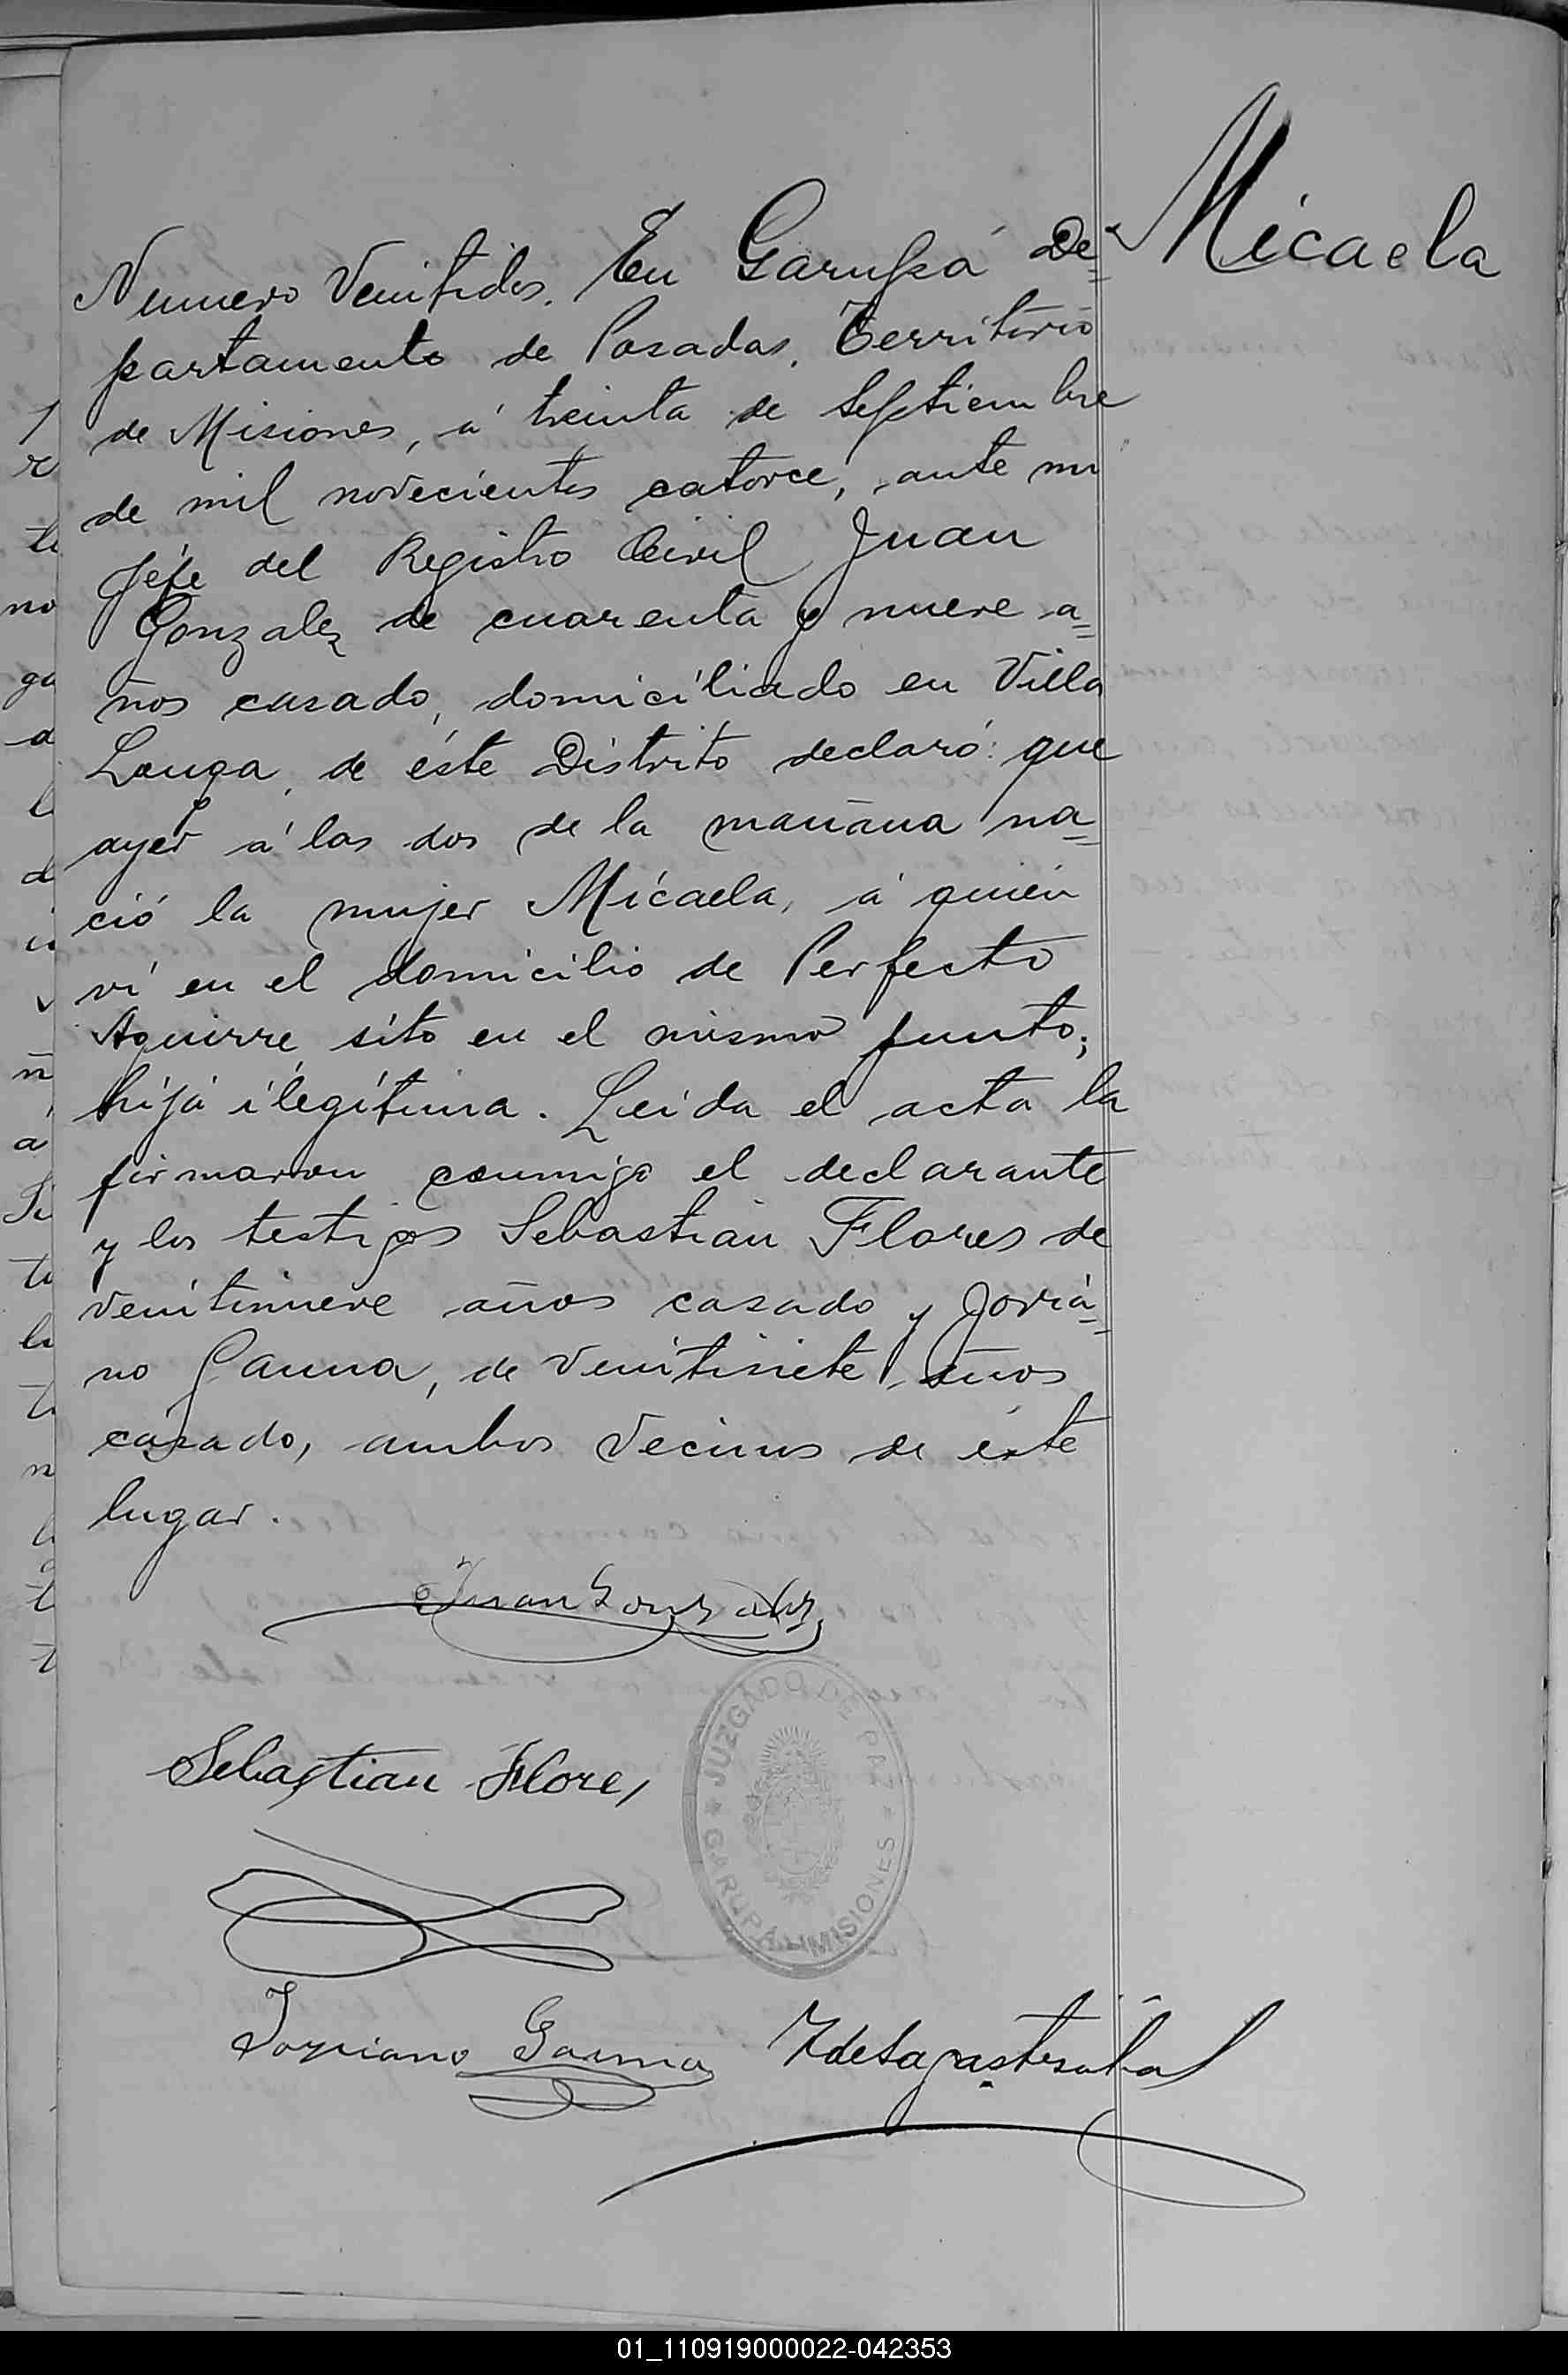 Micaela
Numero Veintidos. En Garupá De=
partamento de Posadas, Territorio
de Misiones, á treinta de Septiembre
de mil novecientos catorce, ante mi
Jefe del Registro Civil Juan
Gonzalez de cuarenta y nueve a=
ños casado, domiciliado en Villa
Longa, de éste Distrito declaró: que
ayer á las dos de la mañana na=
ció la mujer Micaela, á quien
ví en el domicilio de Perfecto
Aguirre sito en el mismo punto;
hija ilegítima. Leida el acta la
firmaron conmigo el declarante
y los testigos Sebastian Flores de
veintinueve años casado y Jovia=
no Gauna, de veintisiete años
casado, ambos vecinos de éste
lugar.
Juan Gonzalez
JUZGADO DE PAZ
GARUPÁ (MISIONES)
Sebastian Flores
Joviano Gauna
01_110919000022-042353